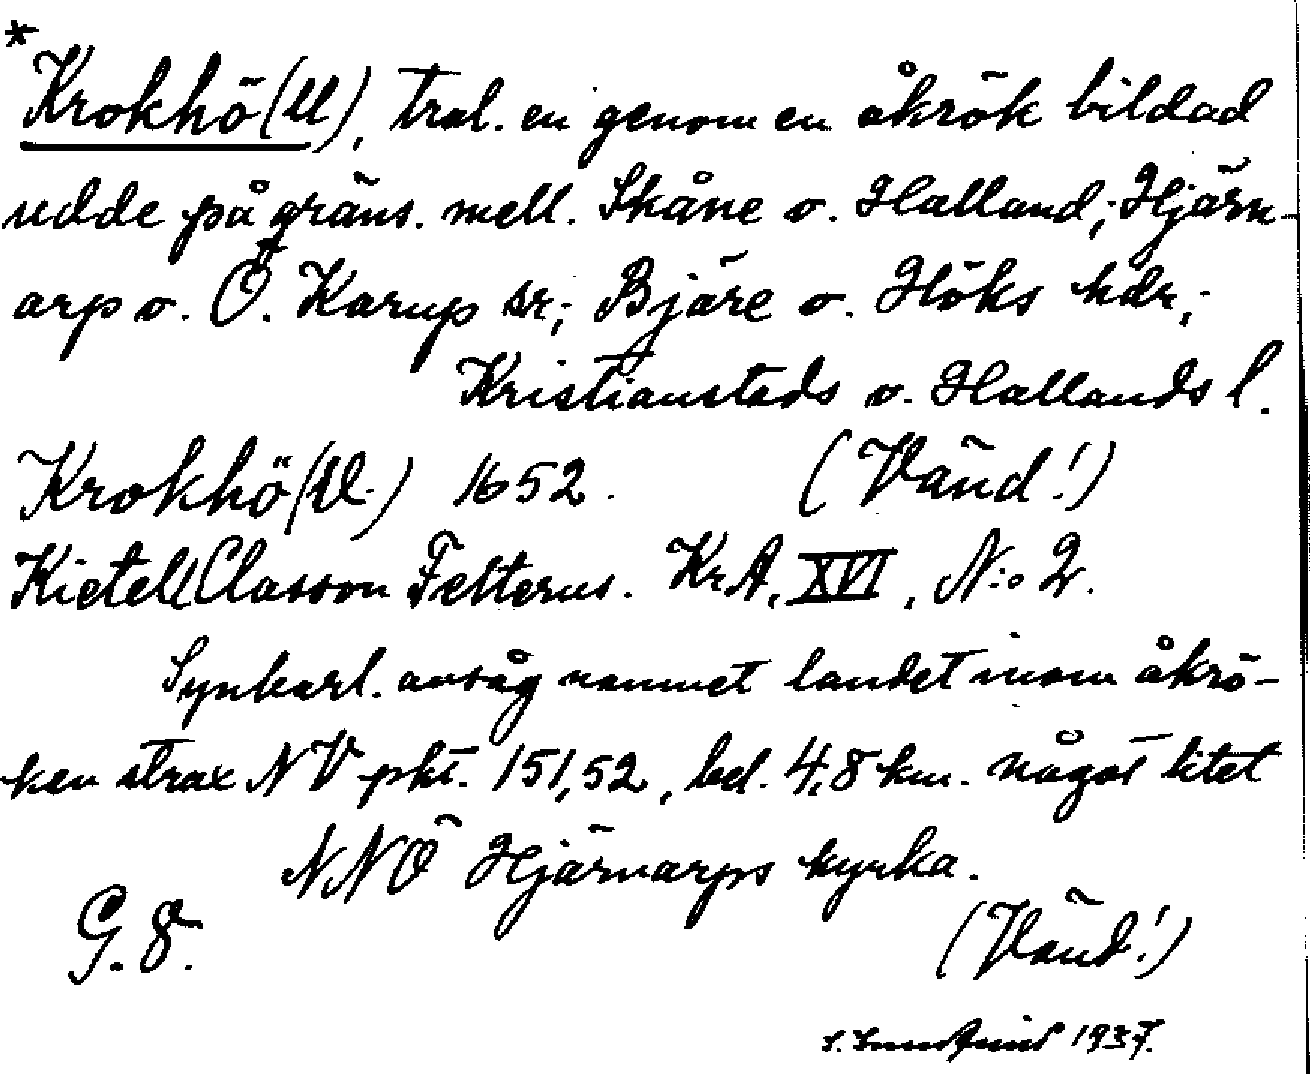 *
Krokhö(ll), trol. en genom en åkrök bildad
udde på gräns. mell. Skåne o. Halland; Hjärn-
arp o. Ö. Karup sr; Bjäre o. Höks hdr;
Kristianstads o. Hallands l.
Krokhö(ll) 1652. (Vänd!)
Kietell Classon Felterus. KrA, XVI, N:o 2.
Synbarl. avsåg namnet landet inom åkrö-
ken strax NV pkt. 151,52, bel. 4,8 km. något litet
NNÖ Hjärnarps kyrka.
G. 8. (Vänd!)
S. 1937.